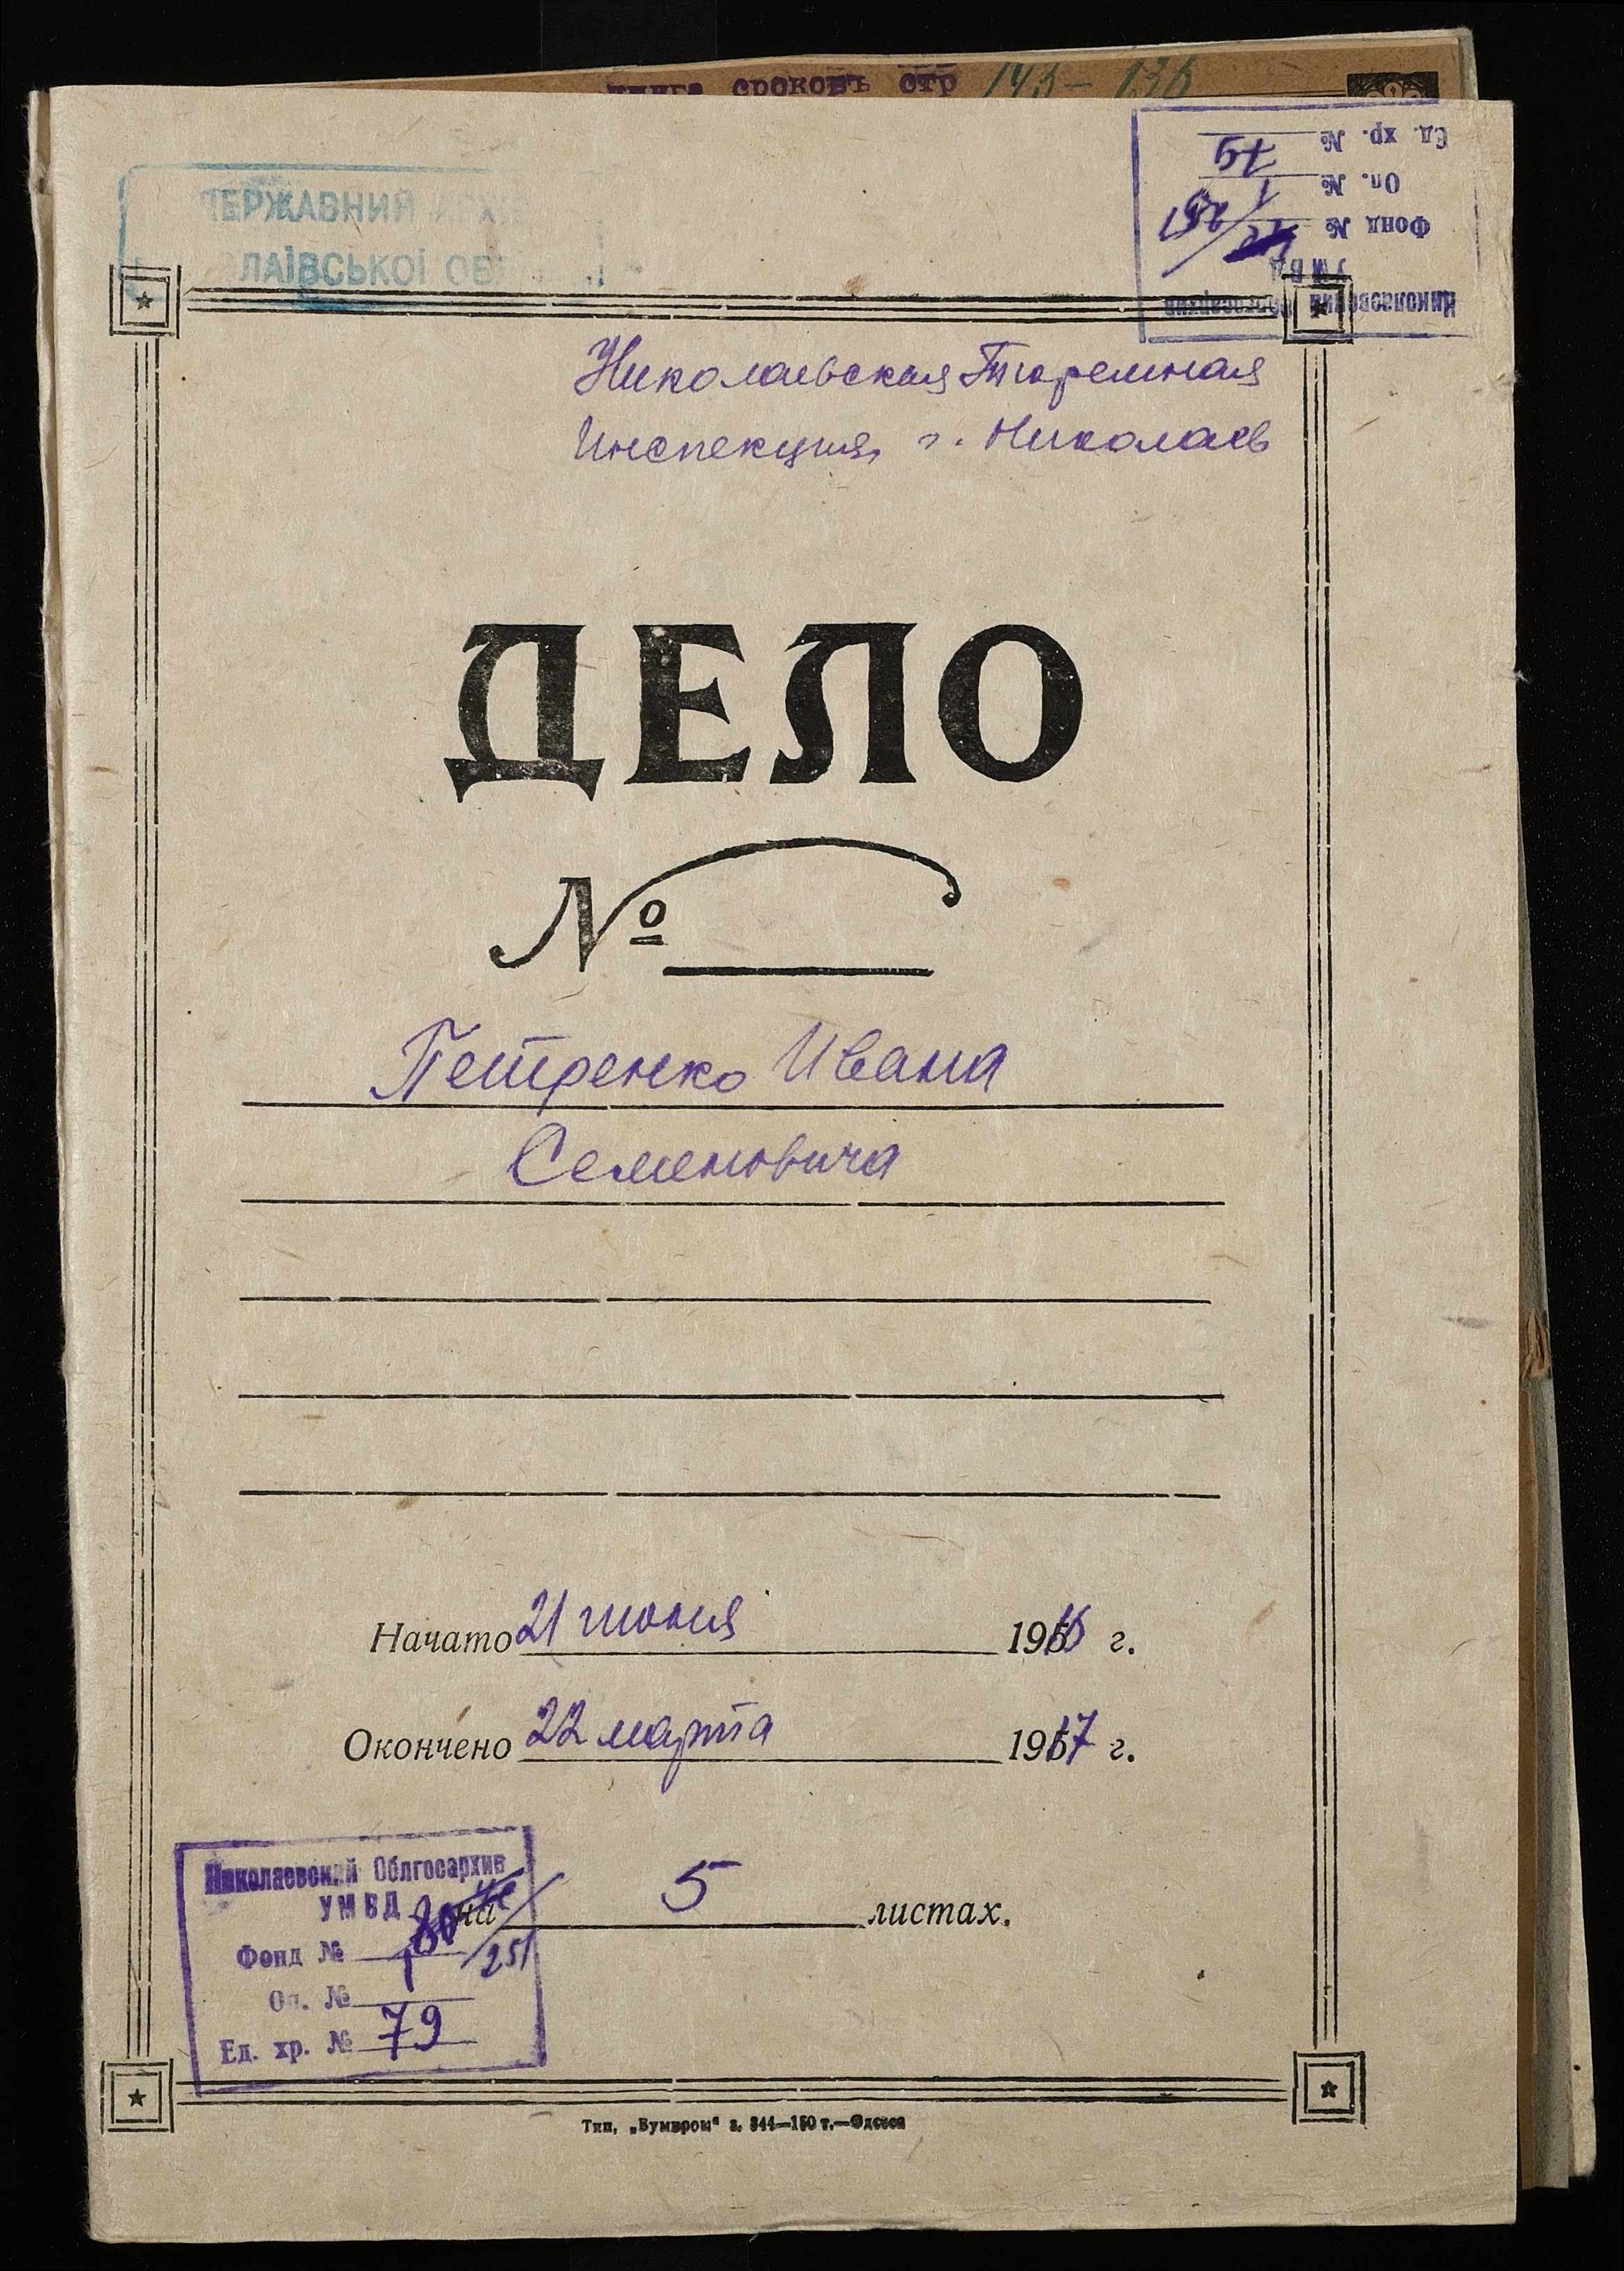 сроковъ стр 143-136
ДЕРЖАВНИЙ АРХ
ЛАЇВСЬКОЇ ОБ
Николаевский Облгосархив
УМВД
Фонд № 251
Оп. № 1
Ед. хр. № 79
Николаевская Тюремная
Инспекция, г. Николаев
ДЕЛО
№
Петренко Ивана
Семеновича
Начато 21 июня 1916 г.
Окончено 22 марта 1917 г.
на 5 листах.
Николаевский Облгосархив
УМВД
Фонд № 251
Оп. № 1
Ед. хр. № 79
Тип. „Бумпром" з. 344—150 т.—Одесса